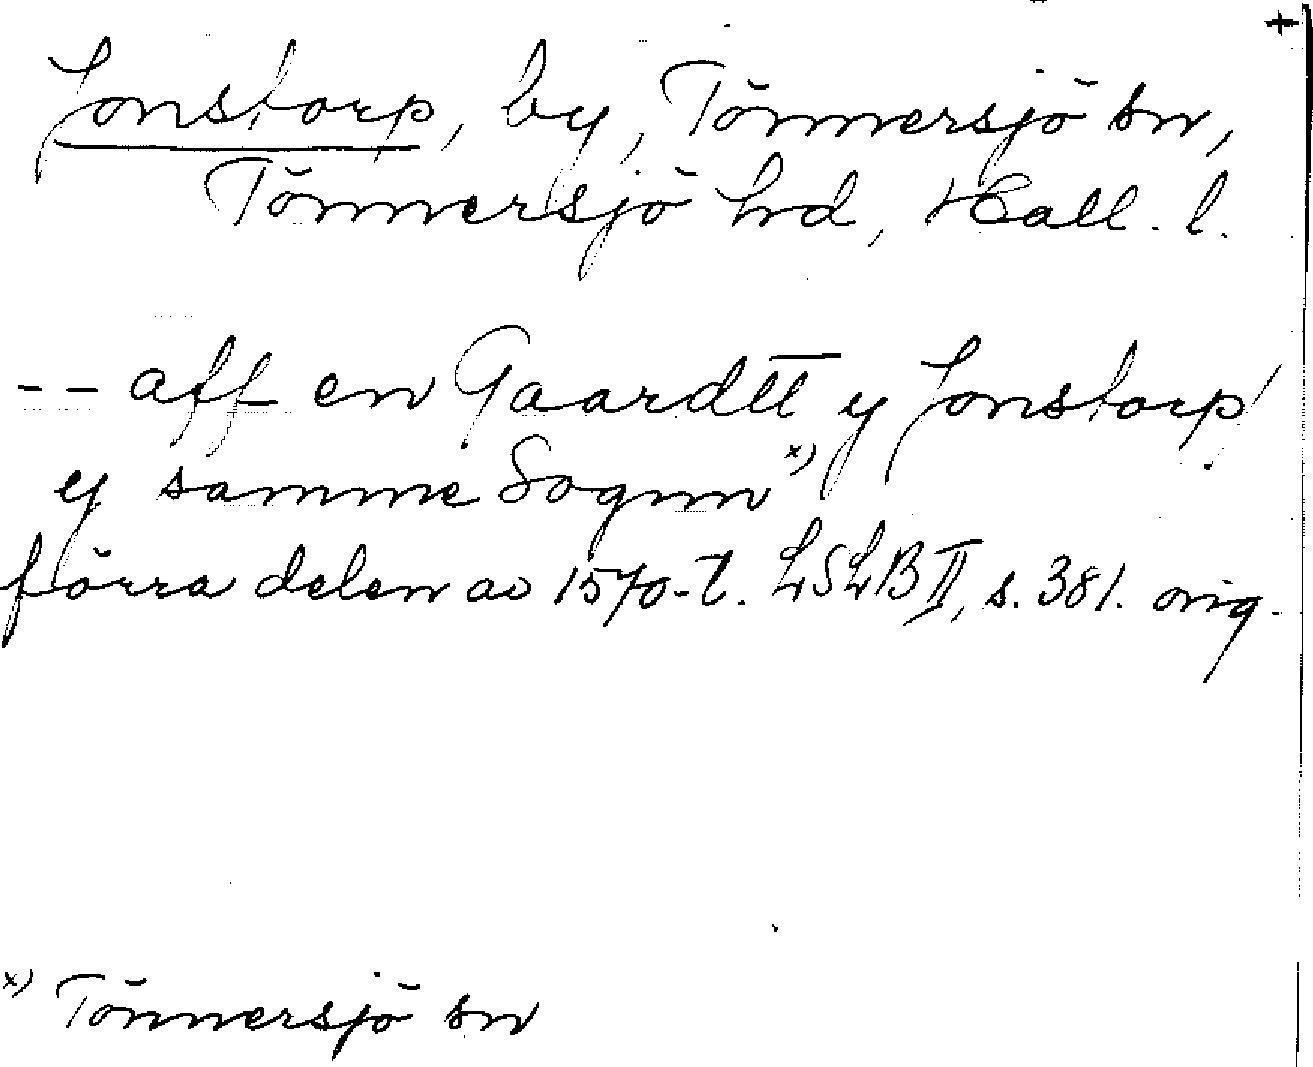 +
Jonstorp, by, Tönnersjö sn,
Tönnersjö hd, Hall. l.
-- aff en Gaardtt y Jonstorp
y samme Sognn x)
förra delen av 1570-t. LSLB II, s. 381. orig.
x) Tönnersjö sn